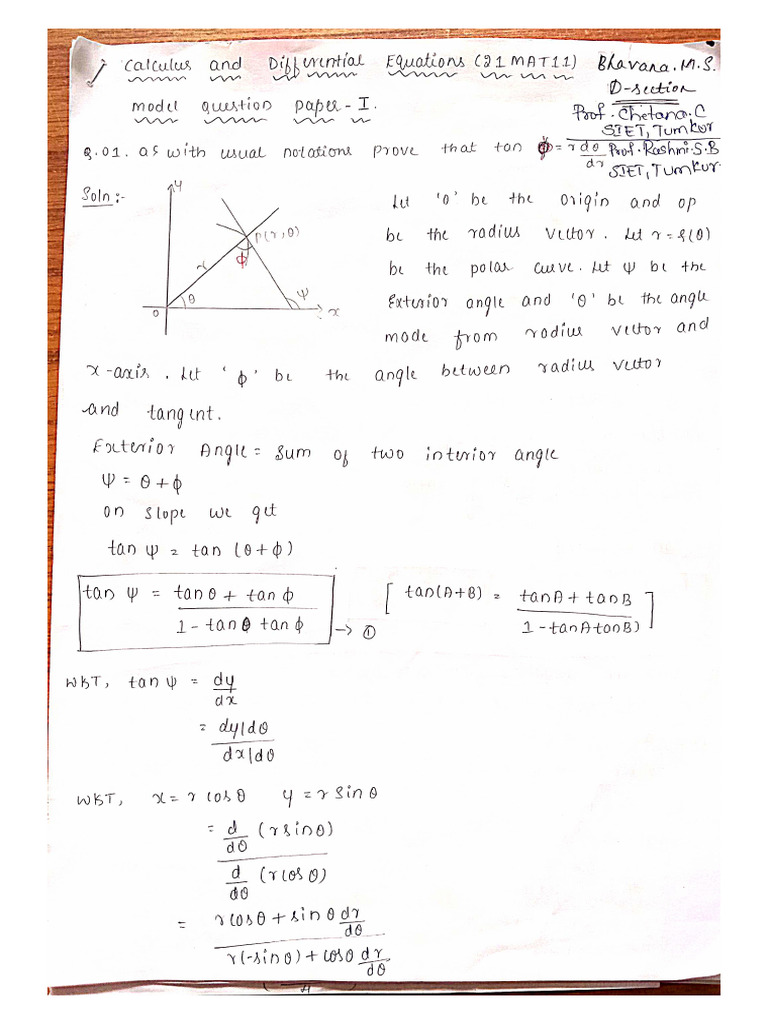 Calculus and Differential Equations (21MAT11) Bhavana.M.S.
D-section
model question paper-I.
Prof. Chetana.C
SIET, Tumkur
Q.01. a) with usual notations prove that tan ϕ = r dθ/dr
Prof. Rashmi.S.B
SIET, Tumkur.
Soln:-
y
P(r,θ)
ϕ
r
θ
ψ
o
x
Let 'O' be the origin and op
be the radius vector. Let r=f(θ)
be the polar curve. Let ψ be the
Exterior angle and 'θ' be the angle
mode from radius vector and
x-axis. Let 'ϕ' be the angle between radius vector
and tangent.
Exterior Angle = sum of two interior angle
ψ = θ+ϕ
on slope we get
tan ψ = tan (θ+ϕ)
tan ψ = tanθ + tan ϕ / 1 - tan θ tan ϕ → ① [ tan(A+B) = tanA + tanB / 1 - tanA tanB) ]
WKT, tan ψ = dy/dx
= dy/dθ / dx/dθ
WKT, x = r cosθ y = r sinθ
= d/dθ (r sinθ) / d/dθ (r cosθ)
= r cosθ + sinθ dr/dθ / r(-sinθ) + cosθ dr/dθ